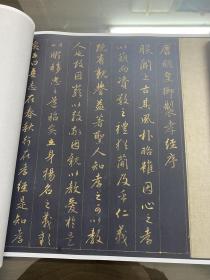 唐明皇御製孝經序
朕聞上古其風朴略雖因心之孝
已萌而資敬之禮猶簡及乎仁義
既有親譽益著聖人知孝之可以教
人也故因嚴以教敬因親以教愛於是
以順移忠之道昭矣立身揚名之義彰
矣子曰吾志在春秋行在孝經是知孝